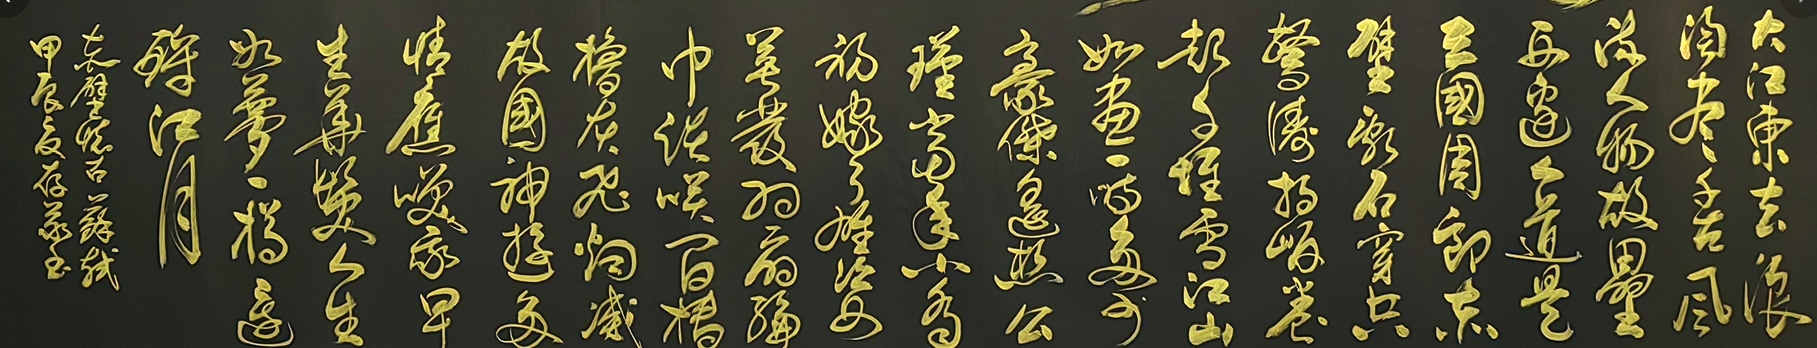 大江東去浪
淘盡千古風
流人物故壘
西邊人道是
三國周郎赤
壁亂石穿空
驚濤拍岸卷
起千堆雪江山
如畫一時多少
豪傑遙想公
瑾當年小喬
初嫁了雄姿
英發羽扇綸
巾談笑間檣
櫓灰飛烟滅
故國神遊多
情應笑我早
生華髮人生
如夢一樽還
酹江月
赤壁懷古蘇軾
甲辰夏存義